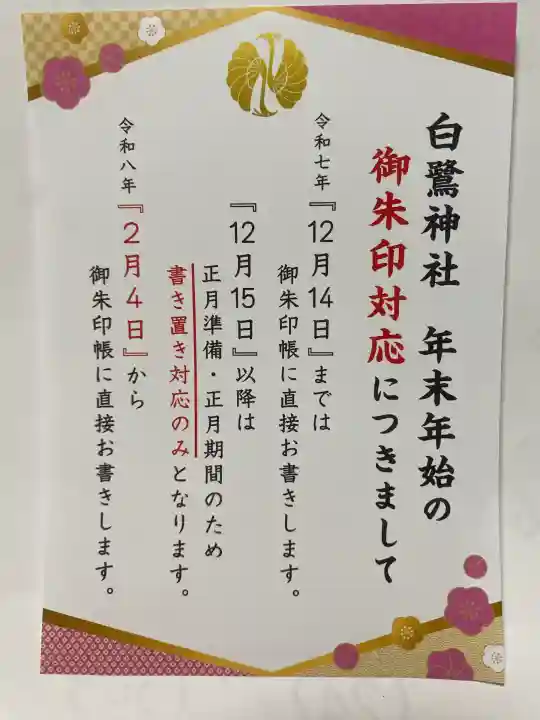 白鷺神社　年末年始の
御朱印対応につきまして
令和七年『12月14日』までは
御朱印帳に直接お書きします。
『12月15日』以降は
正月準備・正月期間のため
書き置き対応のみとなります。
令和八年『2月4日』から
御朱印帳に直接お書きします。